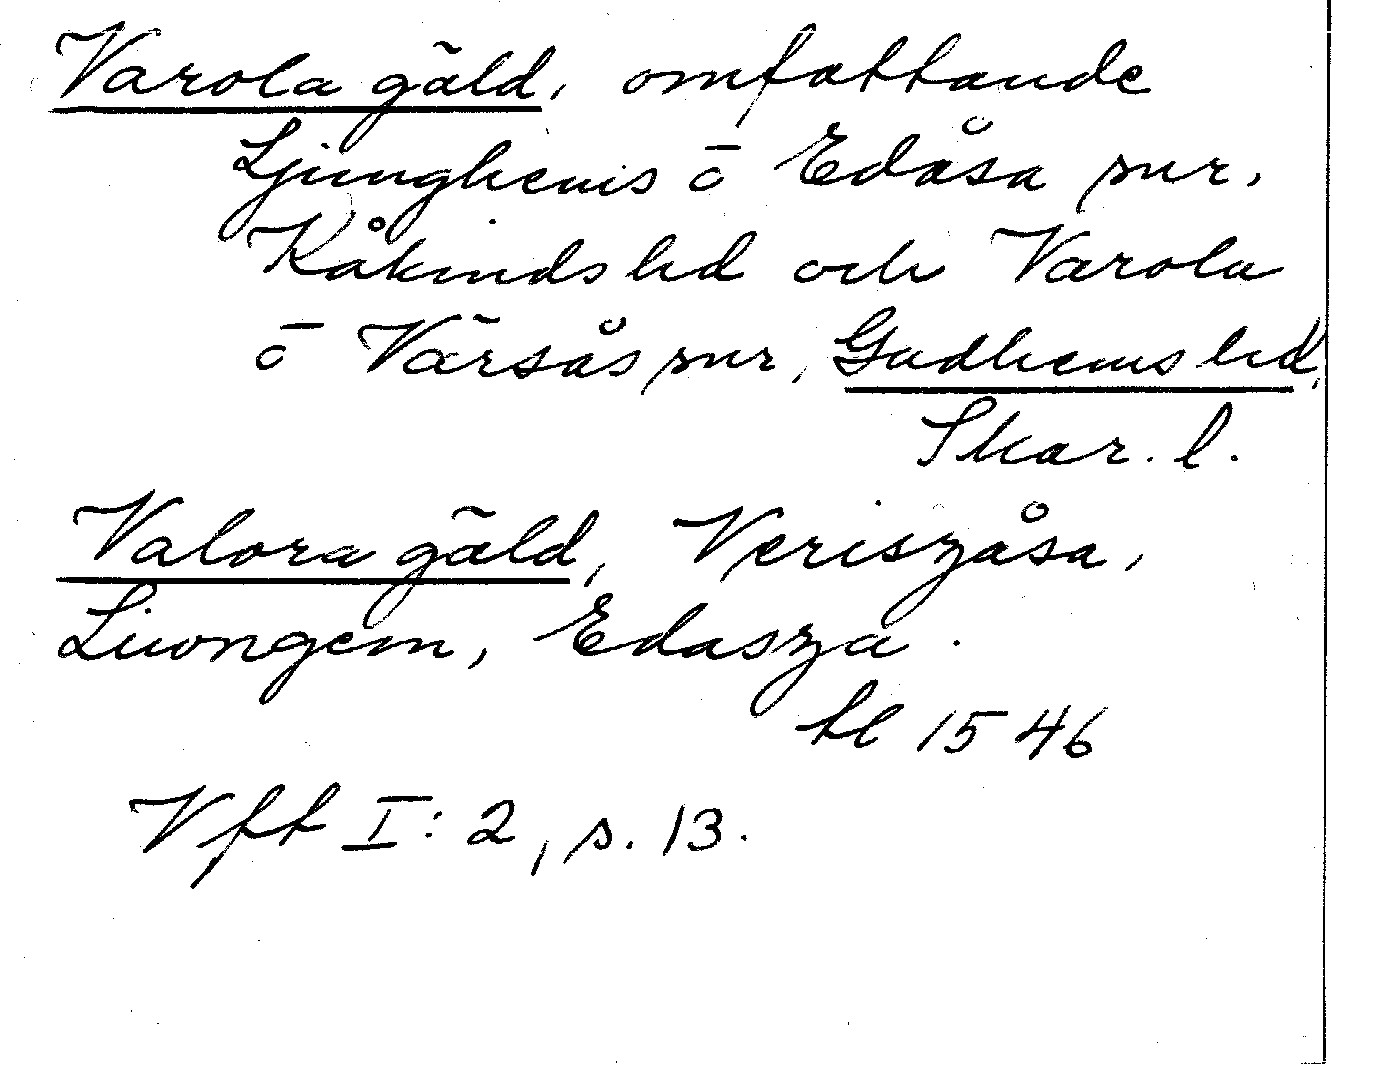 Varola gäld, omfattande
Ljunghems o Edåsa snr,
Kåkinds hd och Varola
o Värsås snr, Gudhems hd,
Skar. l.
Valora gäld, Veriszåsa,
Liuongem, Edasza.
tl 1546
Vft I: 2, s. 13.